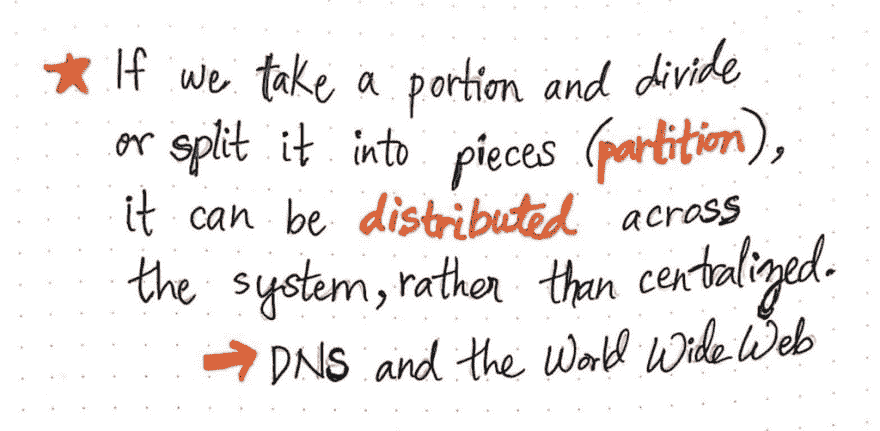 ★ If we take a portion and divide
or split it into pieces (partition),
it can be distributed across
the system, rather than centralized.
→ DNS and the World Wide Web